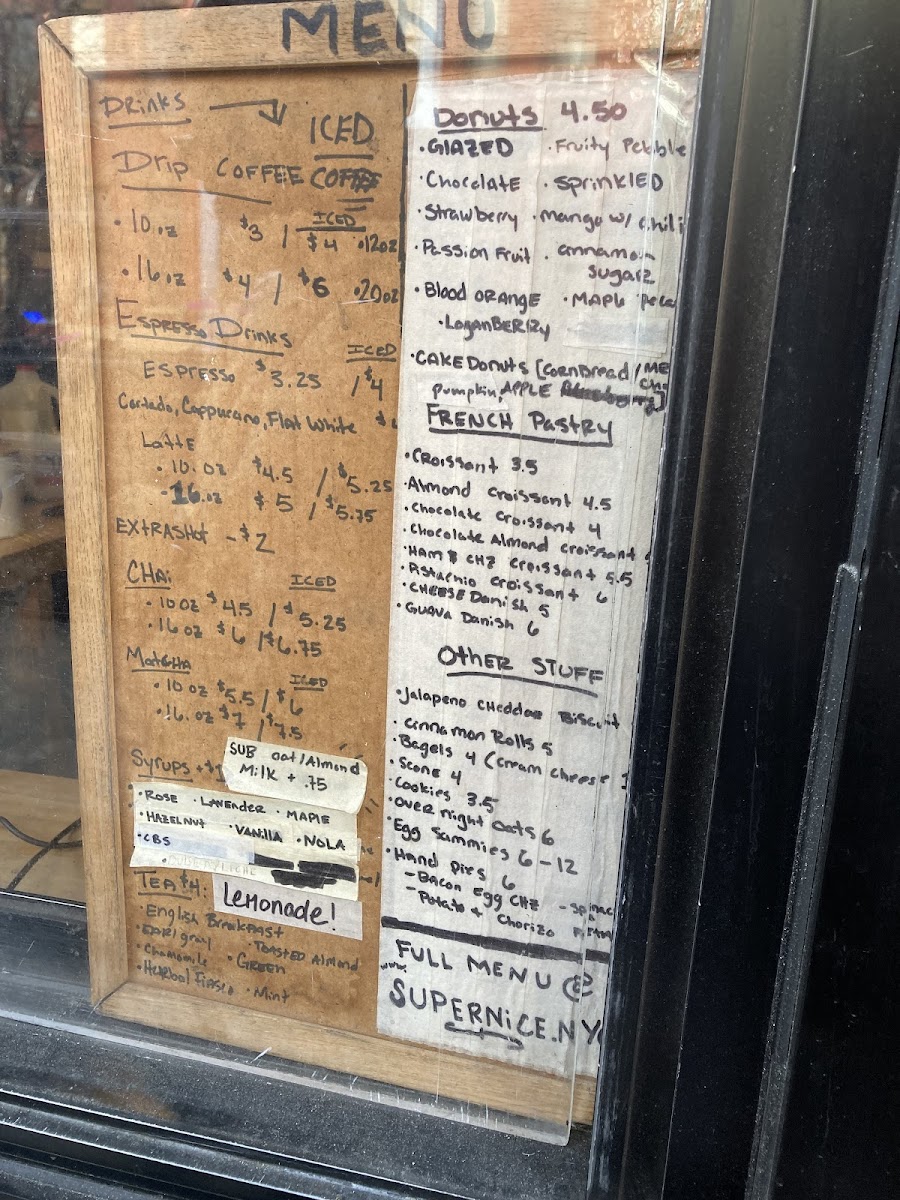 MENU
Drinks
ICED
Drip COFFEE
ICED
• 10.oz $3 / $4 • 12oz
• 16oz $4 / $6 • 20oz
Espresso Drinks
ICED
ESPRESSO $3.25 / $4
Cortado, Coppucano, Flat White $
Latte
• 10.oz $4.5 / $5.25
- 16oz $5 / $5.75
EXTRASHOT - $2
CHAi ICED
• 10oz $4.5 / $5.25
• 16oz $6 / $6.75
Matcha ICED
• 10oz $5.5 / $6
• 16.oz $7 / $7.5
Syrups + $1
SUB oat/Almond
Milk + .75
• ROSE • LAVENDER • MAPLE
• HAZELNUT • VANILLA • NOLA
• CBS
TEA $4:
Lemonade!
• English Breakfast
• EARl gray • TOASTED Almond
• Chamomile • GREEN
• Herbal Fiasco • Mint
Donuts 4.50
• GlAZED • Fruity Pebble
• Chocolate • SPRINKlED
• Strawberry • mango w/ chili
• Passion Fruit • cinnamon
sugar
• Blood ORANGE • MAPle
• LoganBERRy
• CAKE Donuts [CornBread / ME
pumpkin, APPLE
FRENCH Pastry
• CRoissant 3.5
• Almond croissant 4.5
• Chocolate Croissant 4
• Chocolate Almond croissant
• HAM & CHZ croissant 5.5
• Pistachio croissant 6
• CHEESE Danish 5
• GUAVA Danish 6
OTHER STUFF
• Jalapeno CHeddar Biscuit
• Cinnamon Rolls 5
• Bagels 4 (cream cheese 1
• Scone 4
• Cookies 3.5
• Over night oats 6
• Egg Sammies 6 - 12
• Hand Pies 6
- BACON Egg CHZ - Spinac
- Potato + Chorizo
FULL MENU @
www.
SUPERNICE.NY